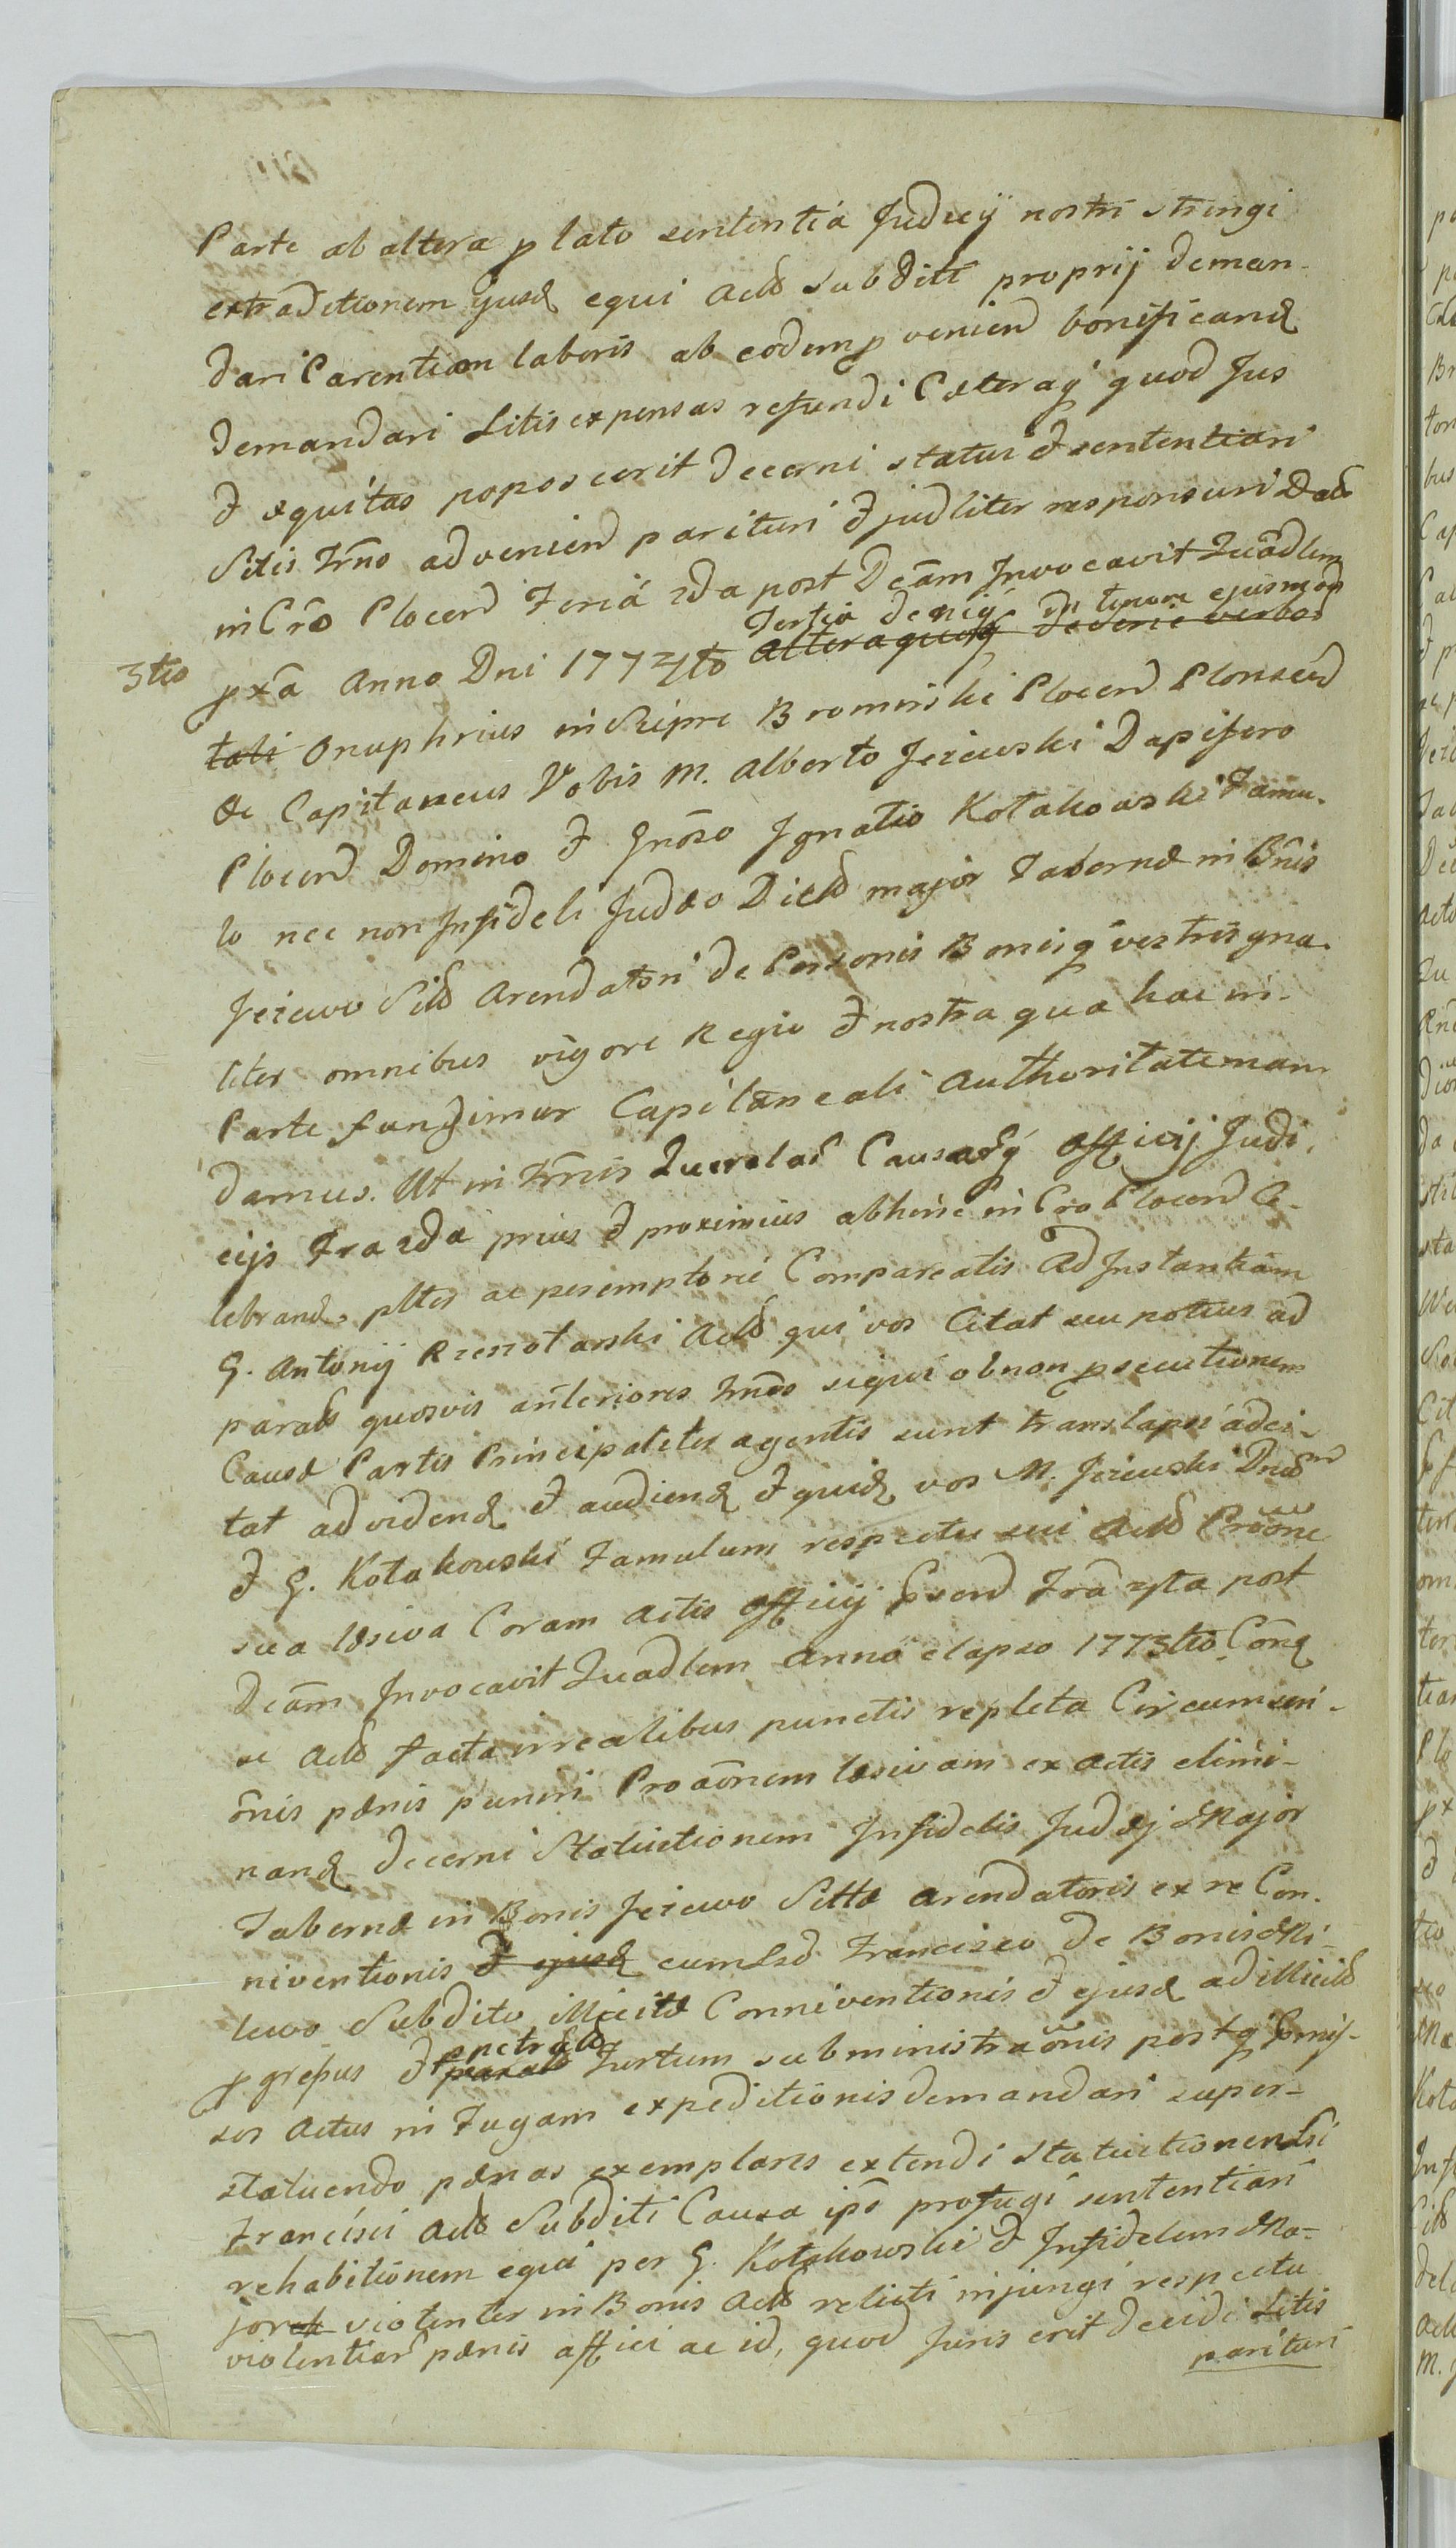 Parte ab altera p lato sententia Judicÿ nostri stringi
extraditionem ejusd equi Actis Subditi proprij deman
dari Carentiam laboris ab eodem p venien bonificand
demandari Litis expensas refundi Cæteraq quod Jus
& æquitas poposcerit decerni statui & sententiari
Sitis Trno advenien parituri & judliter responsuri Dat
in Cro Plocen Feriâ 2da post Dcam Invocavit Quadlem
3tio pxa Anno Dni 1774to Tertia deniq in tenore ejusmod
Alteraquoq
tali Onuphrius in Sciepre Bromirski Plocen Plonscen
&c Capitaneus Vobis M. Alberto Jeżewski Dapifero
Plocen Domino & Gnoso Ignatio Kołakowski Famu-
lo nec non Infideli Judæo Dicto major Tabernæ in Bnis
Jeżewo Sitis Arendatori de Personis Bonisq vestris gna-
liter omnibus vigore Regia & nostra qua hac in
Parte fungimur Capitaneali Authoritate man
damus. Ut in Trnis Querelar Causarq Officij Judi,
cijs Fra 2da prius & proximius abhinc in Cro Plocen Ce-
lebrand, pltes ac peremptorie Compareatis Ad Instantiam
G. Antonij Rzeszotarski Actis qui vos Citat seu potius ad
parats quosvis anteriores Trnos siqui ob non psecutionem
Causæ Partis Principaliter agentis sunt translapsi adci-
tat ad vidend & audiend & quid vos M. Jeżewski Dnum
& G. Kołakowski Famulum respectu sui Actis Proone
sua læsiva Coram Actis Officij Pssen Fra 4ta post
Dcam Invocavit Quadlem Anno elapso 1773tio Cond
se Actis facta irrealibus punctis repleta Circumscri-
onis pænis puniri Proaonem læsivam ex Actis elimi-
nand decerni Statuitionem Infidelis Judæj Major
Tabernæ in Bonis Jeżewo Sittæ Arendatoris ex re Con-
niventionis & ejusd cum Lsd Francisco de Bonis Mi-
lewo Subdito illicitæ Conniventionis & ejusd ad illicits
pgressus & ppetrats Furtum subministraonis postq
sos Actus in Fugam expeditionis demandari super-
statuendo pænas exemplares extendi Statuitionem Lsi
Francisci Actis Subditi Causa ips profugi sententiari
rehabitionem equi per G. Kołakowski & Infidelem Ma-
jorem violenter in Bonis Actis relicti injungi respectu
violentiar pænis affici ac id, quod Juris erit decidi Litis
parituri